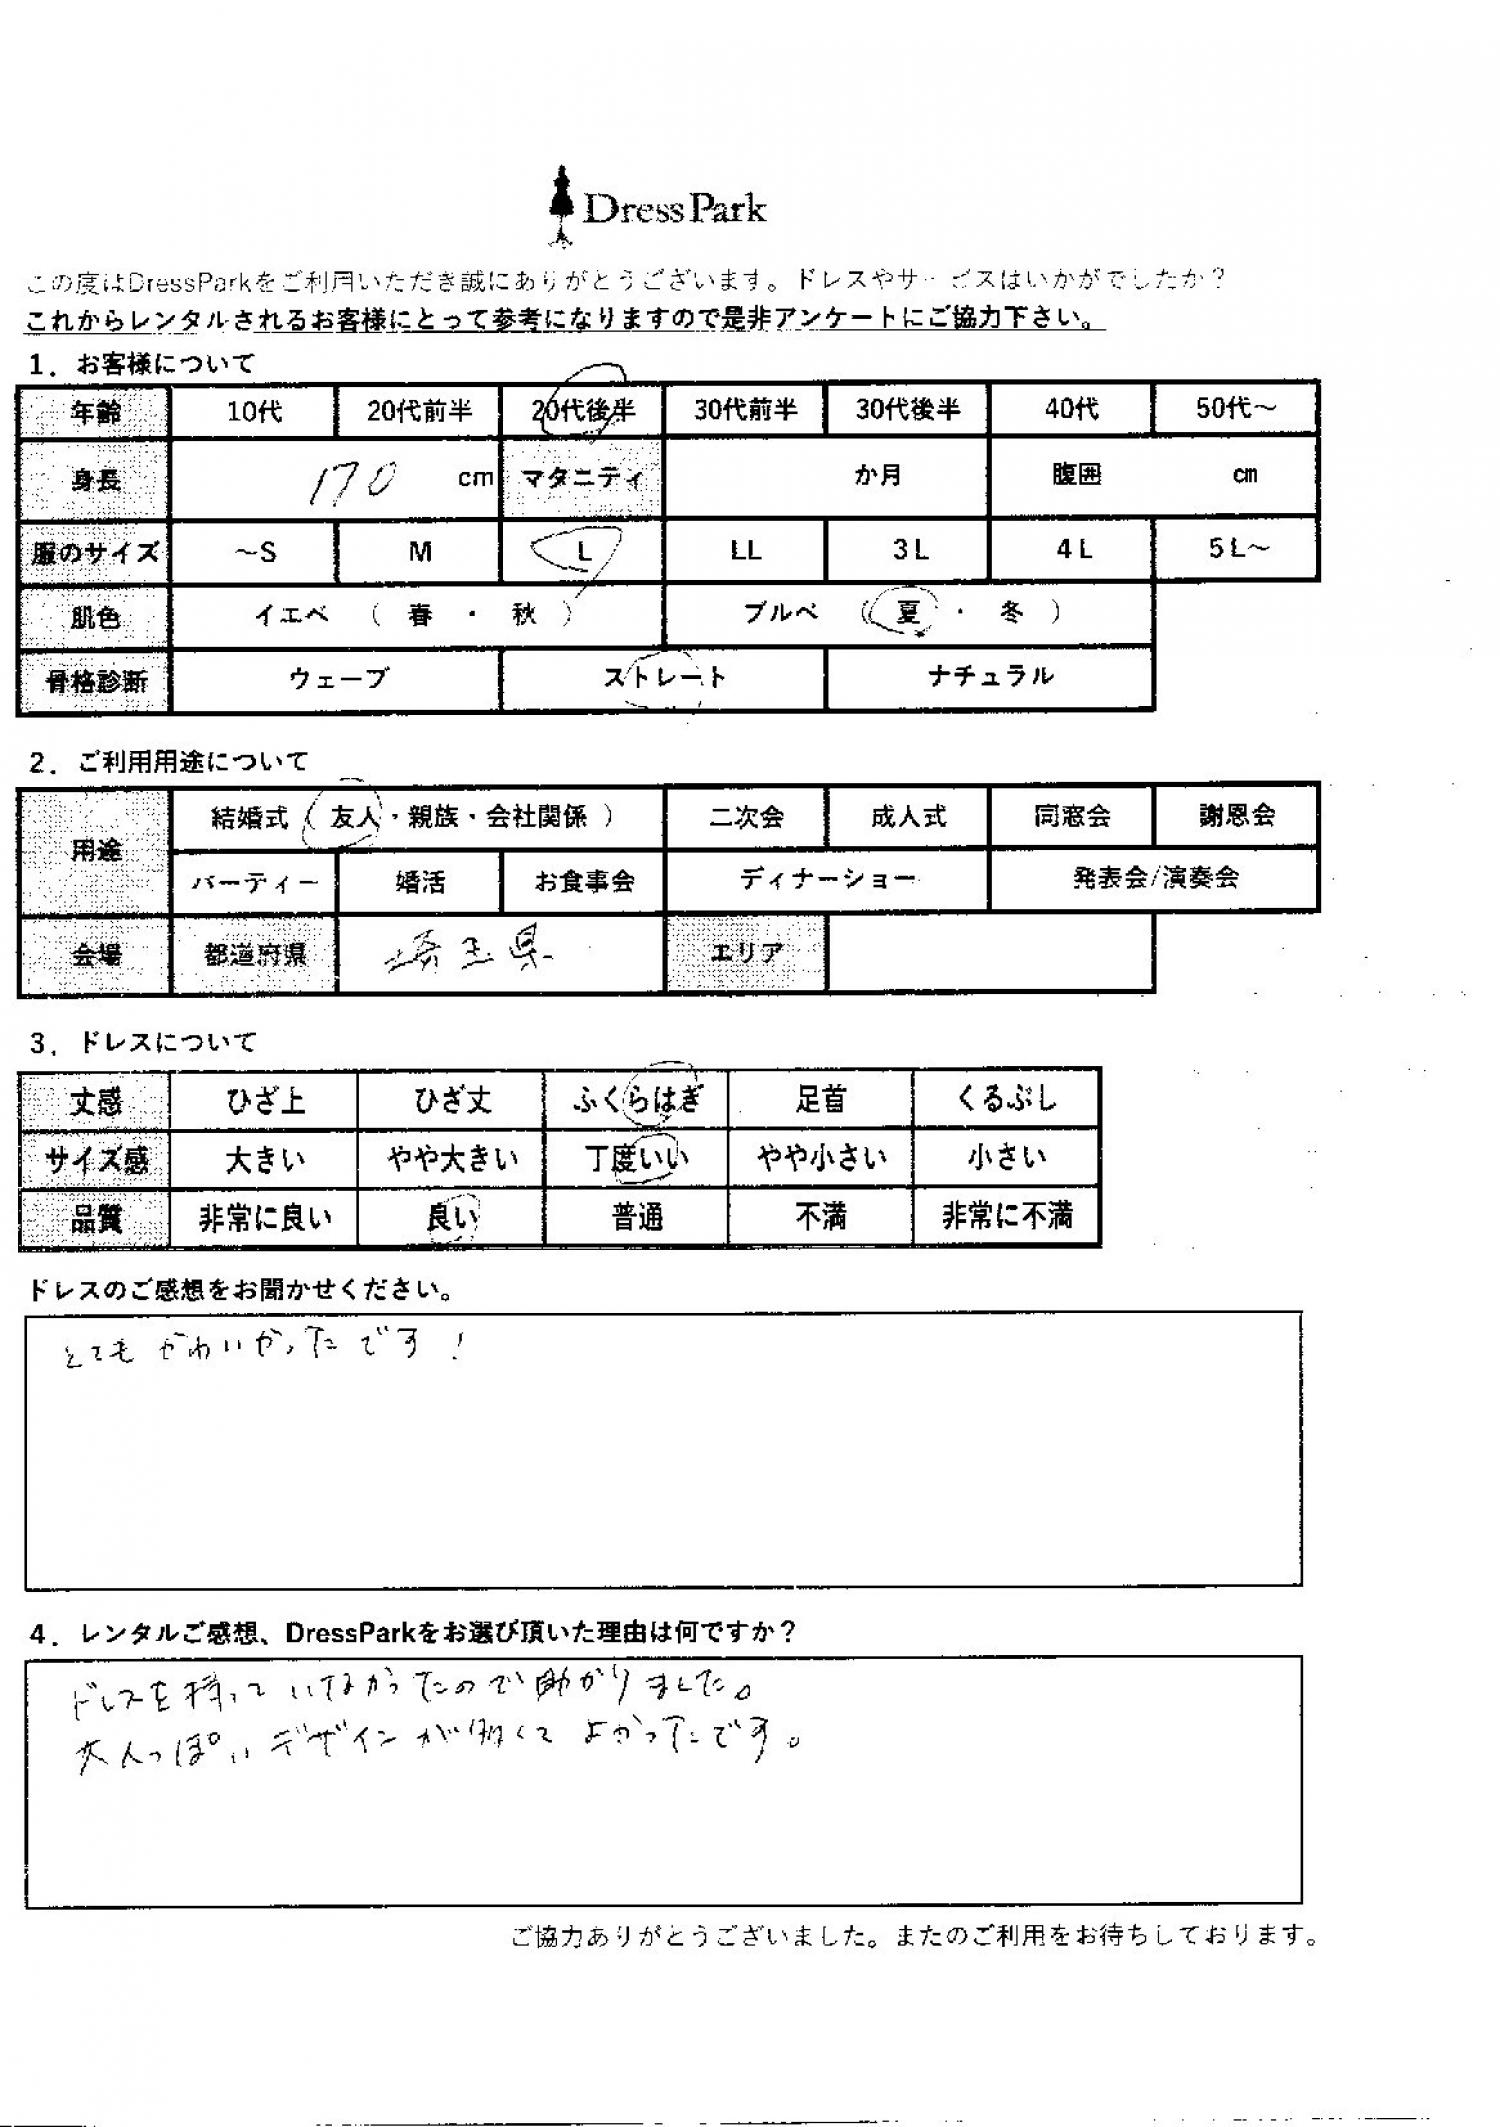 DressPark
この度はDressParkをご利用いただき誠にありがとうございます。ドレスやサービスはいかがでしたか？
これからレンタルされるお客様にとって参考になりますので是非アンケートにご協力下さい。
1．お客様について
年齢 10代 20代前半 20代後半 30代前半 30代後半 40代 50代～
身長 170 cm マタニティ か月 腹囲 cm
服のサイズ ～S M L LL 3L 4L 5L～
肌色 イエベ （ 春 ・ 秋 ） ブルベ （ 夏 ・ 冬 ）
骨格診断 ウェーブ ストレート ナチュラル
2．ご利用用途について
用途 結婚式（ 友人・親族・会社関係 ） 二次会 成人式 同窓会 謝恩会
パーティー 婚活 お食事会 ディナーショー 発表会/演奏会
会場 都道府県 埼玉県 エリア
3．ドレスについて
丈感 ひざ上 ひざ丈 ふくらはぎ 足首 くるぶし
サイズ感 大きい やや大きい 丁度いい やや小さい 小さい
品質 非常に良い 良い 普通 不満 非常に不満
ドレスのご感想をお聞かせください。
とてもかわいかったです！
4．レンタルご感想、DressParkをお選び頂いた理由は何ですか？
ドレスを持っていなかったので助かりました。
大人っぽいデザインが多くてよかったです。
ご協力ありがとうございました。またのご利用をお待ちしております。